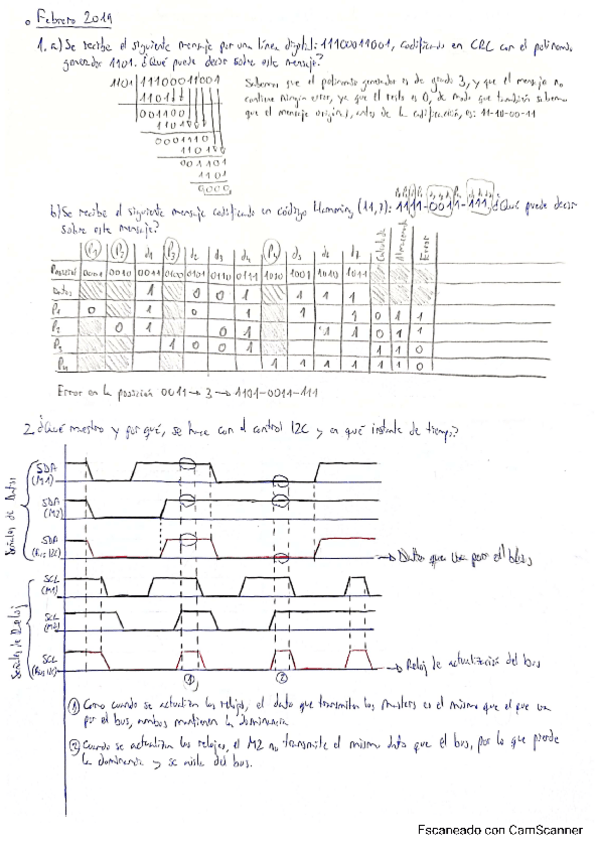 Febrero 2019
1. a) Se recibe el siguiente mensaje por una línea digital: 11100011001, codificado en CRC con el polinomio
generador 1101. ¿Qué puede decir sobre este mensaje?
1101 11100011001
1101
001100
1101
0001110
1101
001101
1101
0000
Sabemos que el polinomio generador es de grado 3, y que el mensaje no
contiene ningún error, ya que el resto es 0, de modo que también sabemos
que el mensaje original, antes de la codificación, es: 11-10-00-11
b) Se recibe el siguiente mensaje codificado en código Hamming (11,7): 1111-0011-111. ¿Qué puede decir
sobre este mensaje?
P1 P2 d1 P3 d2 d3 d4 P4 d5 d6 d7 Calculado Almacenado Error
Posición 0001 0010 0011 0100 0101 0110 0111 1000 1001 1010 1011
Datos 1 0 0 1 1 1 1
P1 0 1 0 1 1 1 0 1 1
P2 0 1 0 1 1 1 0 1 1
P3 1 0 0 1 1 1 0
P4 1 1 1 1 1 1 0
Error en la posición 0011 → 3 → 1101-0011-111
2. ¿Qué maestro y por qué, se hace con el control I2C y en qué instante de tiempo?
Señales de Datos
SDA
(M1)
SDA
(M2)
SDA
(Bus I2C)
→ Datos que van por el bus
Señales de Reloj
SCL
(M1)
SCL
(M2)
SCL
(Bus I2C)
→ Reloj de actualización del bus
1 2
1 Como cuando se actualizan los relojes, el dato que transmiten los masters es el mismo que el que va
por el bus, ambos mantienen la dominancia
2 Cuando se actualizan los relojes, el M2 no transmite el mismo dato que el bus, por lo que pierde
la dominancia y se aísla del bus.
Escaneado con CamScanner